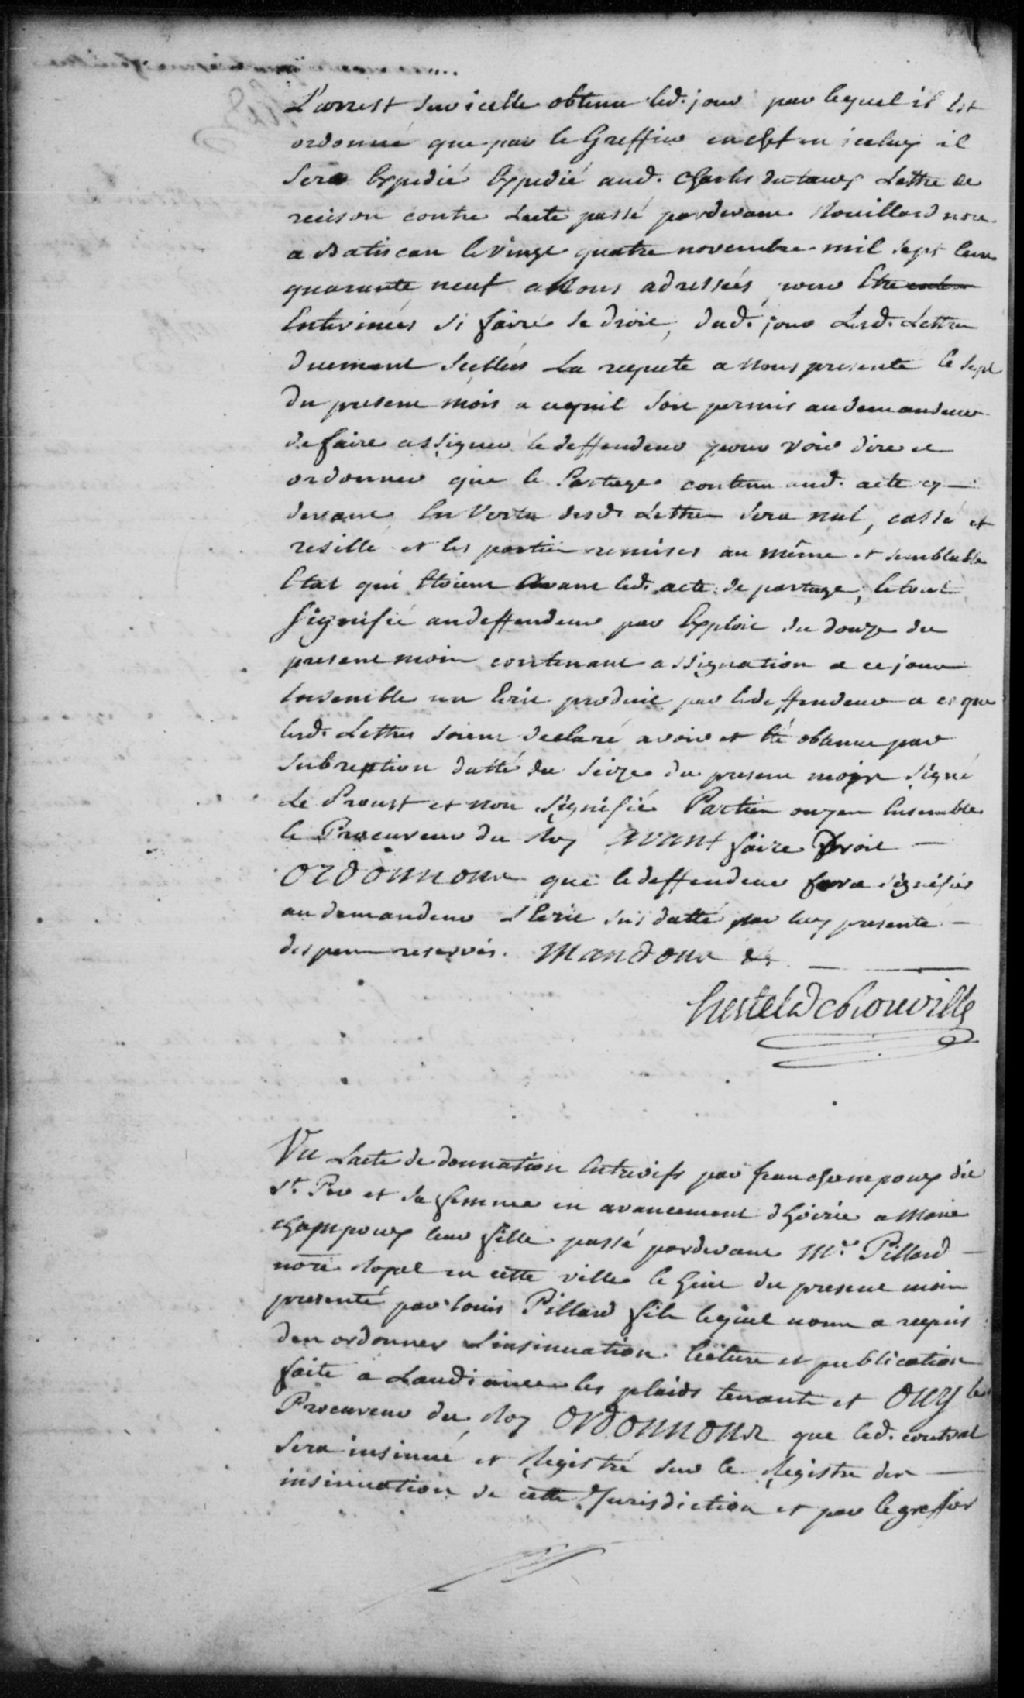 L'arrest sur icelle obtenu led. jour par lequel il Est
ordonné que par le Greffier en chef en iceluy il
Sera Expedié Expedié aud. Charles dutaux Lettre de
recision contre Lacte passé pardevant Rouillard nore
a Batiscan le vingt quatre novembre mil sept Cent
quarante neuf a Nous adressées, pour Etre
Enterinées si faire se droit, dud. jour Lesd. Lettres
duement Scellées La requete a Nous presenté le sept
du present mois a cequil Soit permis au demandeur
de faire assigner le deffendeur pour voir dire et
ordonner que le Partage contenu aud. acte cy
devant En Vertu desd. Lettres Sera nul, cassé et
resillé et les parties remises au même et semblable
Etat qui Etoient Avant led. acte de partage, le tout
Signifié au deffendeur par Exploit du douze du
present mois contenant assignation a ce jour
Ensemble un Ecrit produit par le deffendeur a ce que
lesd. Lettres soient declaré avoir eté obtenue par
Subreption datté du Seize du present mois Signé
Le Proust et non Signifié Parties ouyes Ensemble
le Procureur du Roy avant faire Droit
ORDONNONS que le deffendeur fera signifier
au demandeur L'Ecrit sus datté par luy presenté
depens reservés. Mandons &
Hertel De Rouville
Vu Lacte de donnation Entrevifs par françois champoux dit
St. Per et sa femme en avancement d'hoirie a Marie
Champoux leur fille passé pardevant Mr. Pillard
notre Royal en cette ville le huit du present mois
presenté par Louis Pillard fils lequel nous a requis
d'en ordonner L'insinuation. lecture et publication
faite a Laudiance les plaids tenants et OUY le
Procureur du Roy ORDONNONS que led. contrat
Sera insinué et Registré sur le Registre des
insinuation de cette Jurisdiction et par le greffier